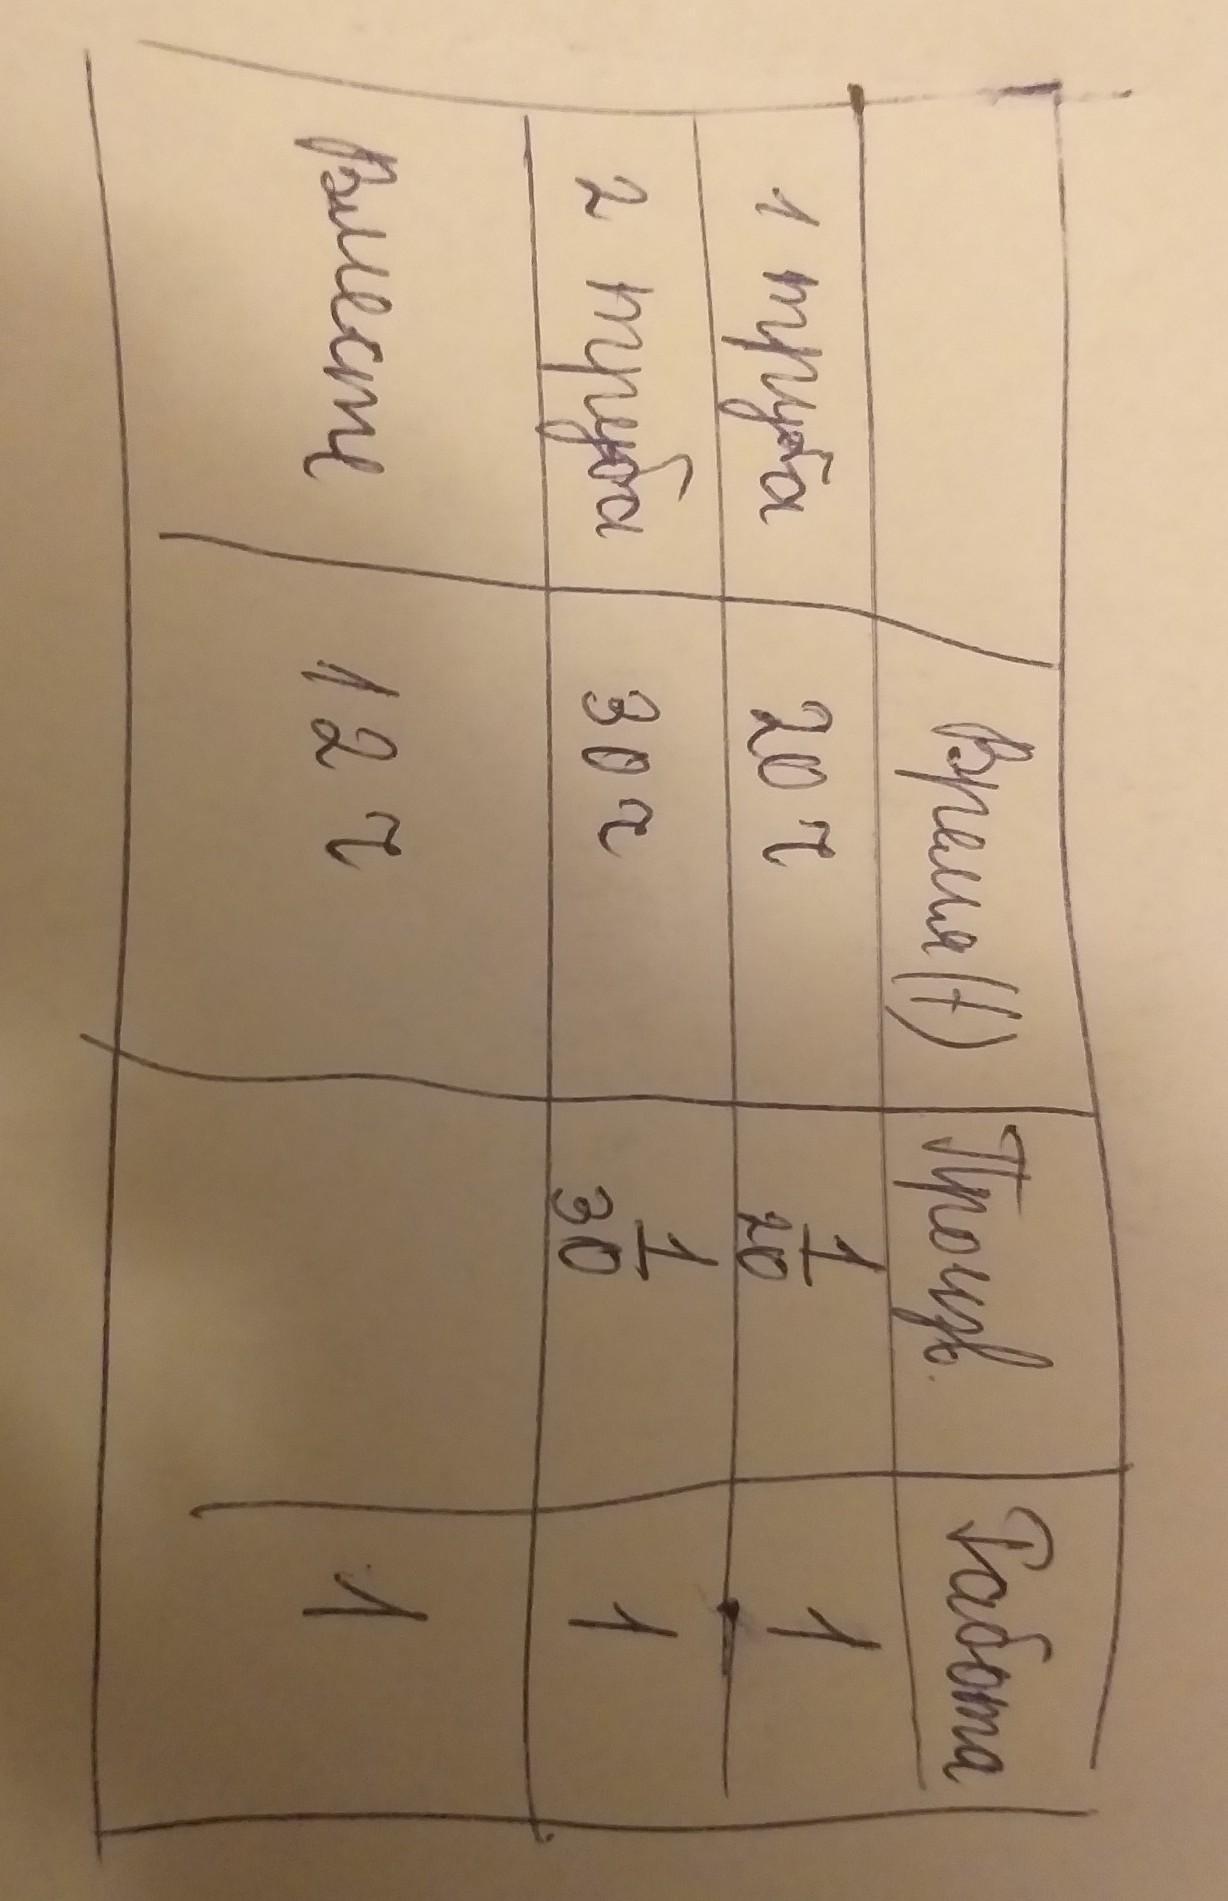 Время(t) Произв. Работа
1 труба 20 ч 1/20 1
2 труба 30 ч 1/30 1
Вместе 12 ч 1